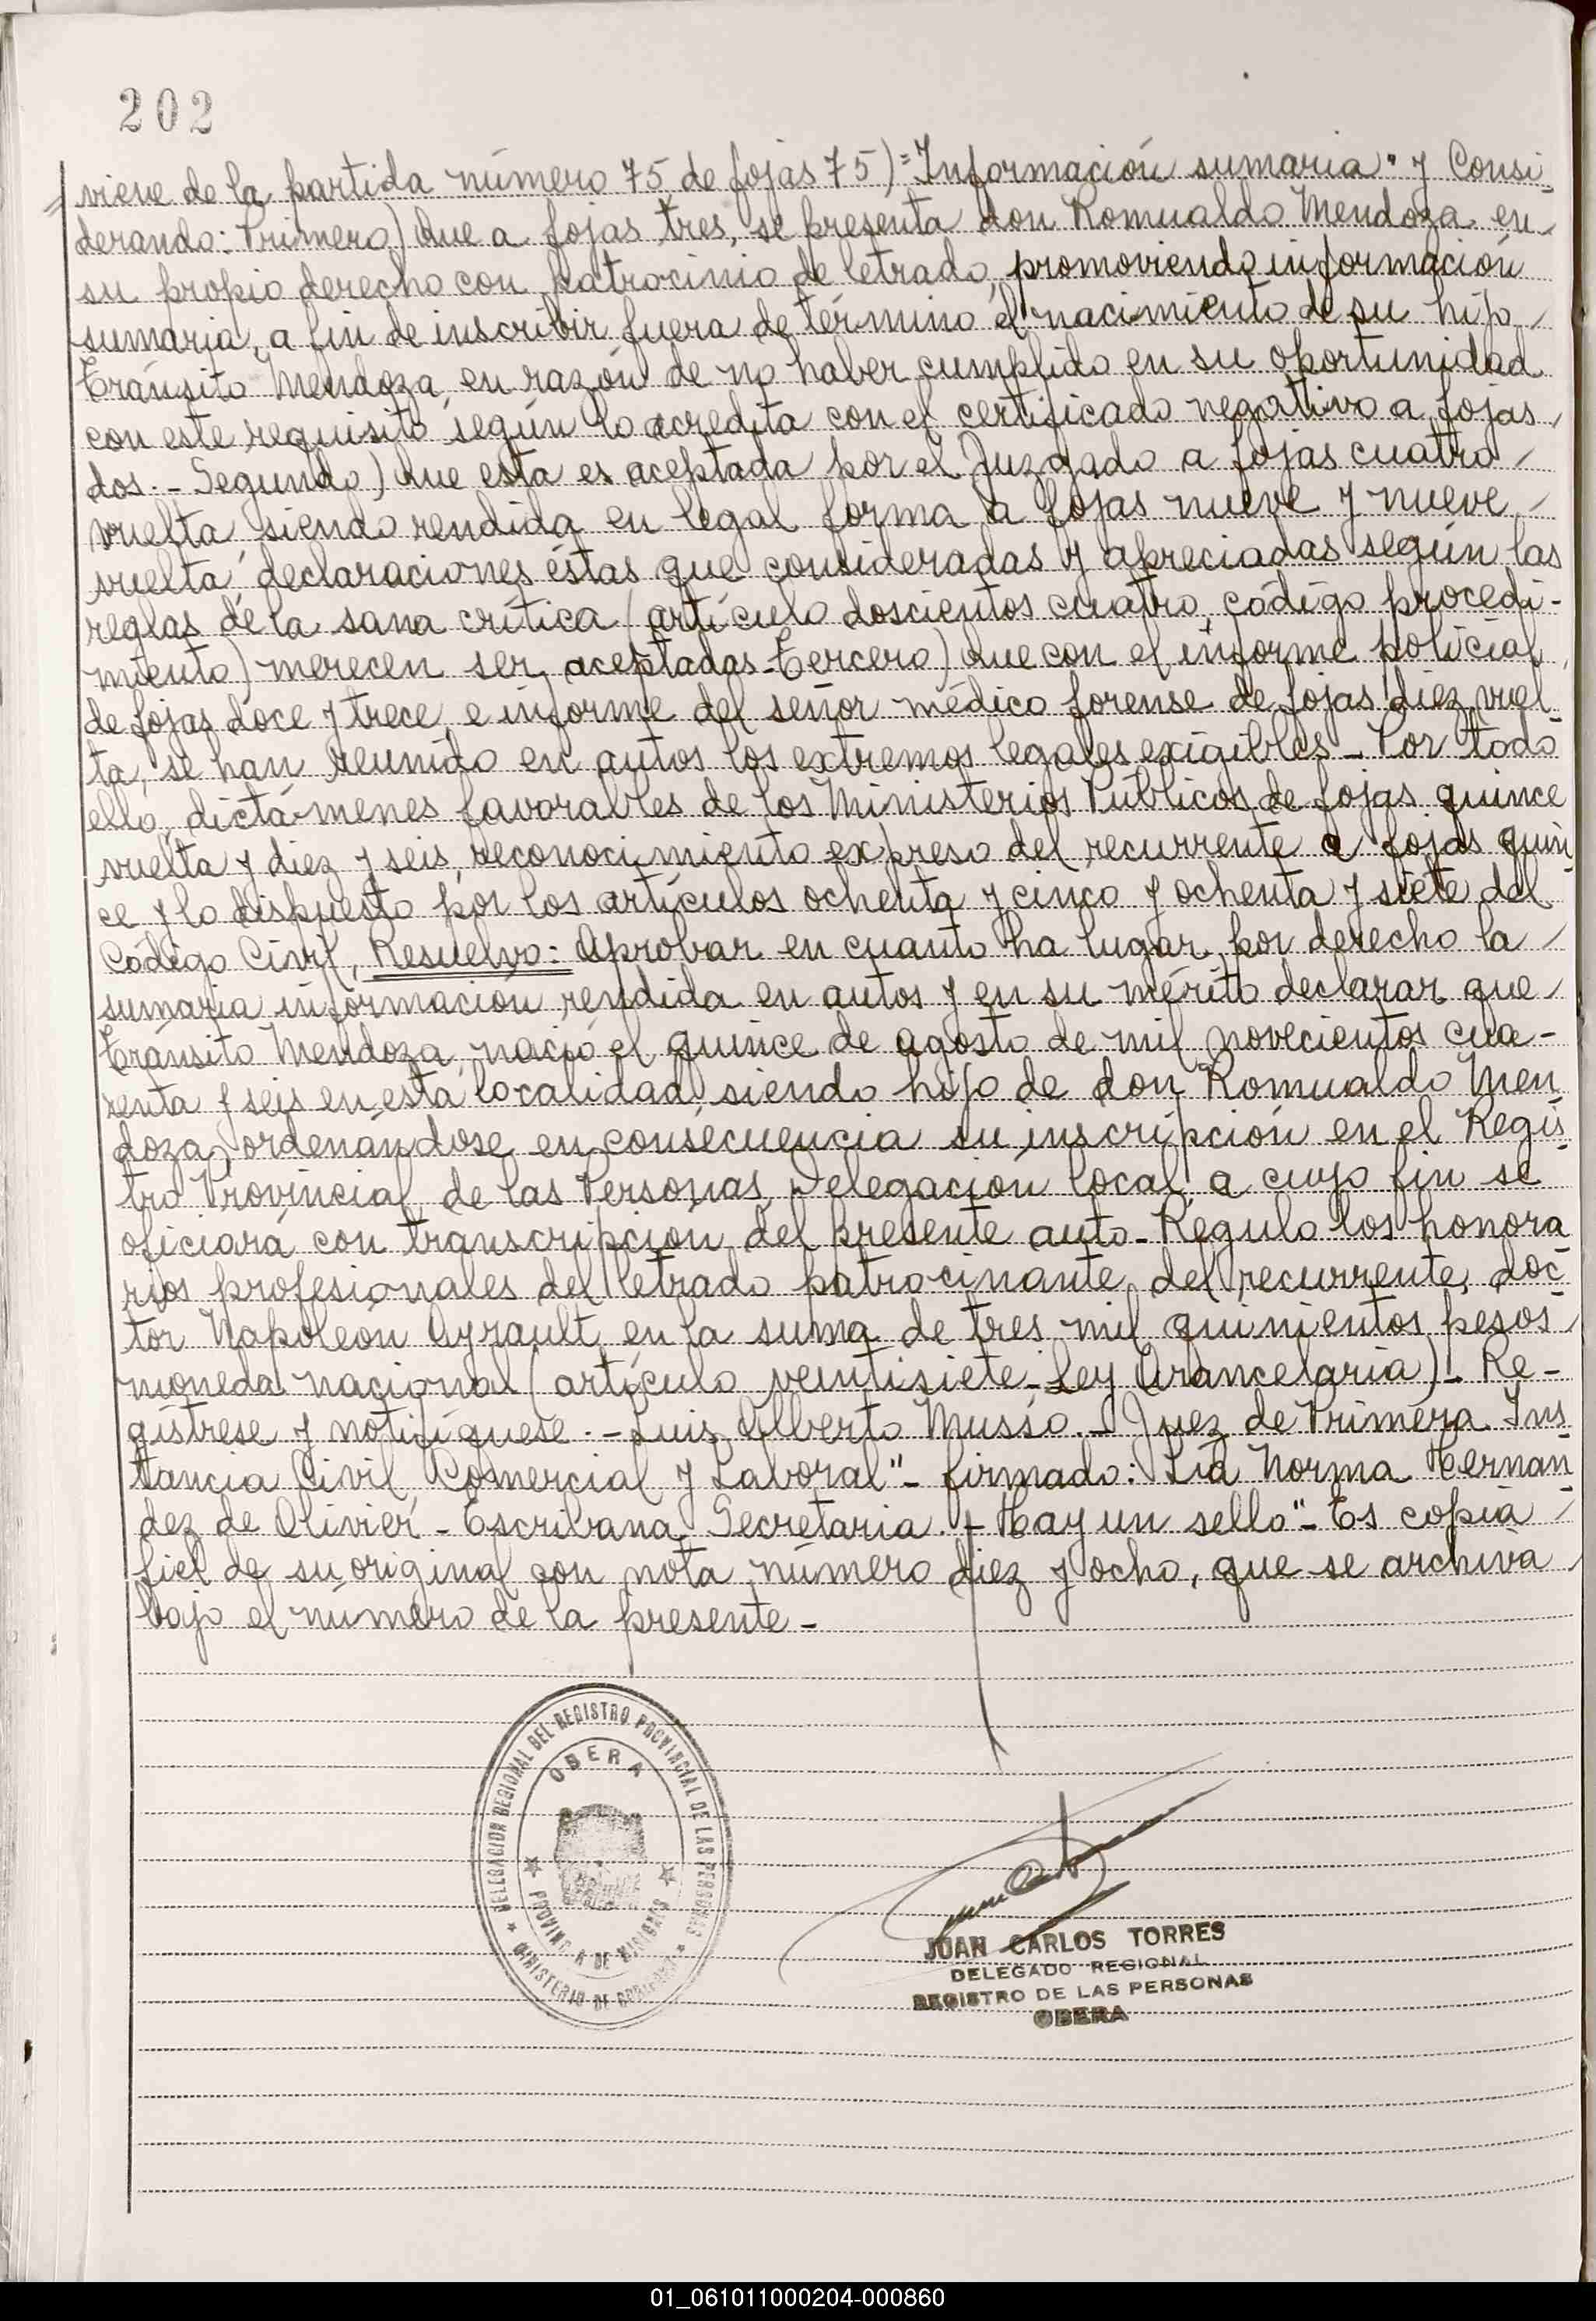 202
viene de la partida número 75 de fojas 75) = Información sumaria " y Consi
derando: Primero) Que a fojas tres, se presenta don Romualdo Mendoza en
su propio derecho con patrocinio de letrado, promoviendo información
sumaria, a fin de inscribir fuera de término el nacimiento de su hijo
Tránsito Mendoza, en razón de no haber cumplido en su oportunidad
con este requisito según lo acredita con el certificado negativo a fojas
dos.- Segundo) Que esta es aceptada por el Juzgado a fojas cuatro
vuelta, siendo rendida en legal forma a fojas nueve y nueve
vuelta, declaraciones éstas que consideradas y apreciadas según las
reglas de la sana crítica (artículo doscientos cuatro, código procedi-
miento) merecen ser aceptadas - Tercero) Que con el informe policial
de fojas doce y trece, e informe del señor médico forense de fojas diez vuel-
ta, se han reunido en autos los extremos legales exigibles - Por todo
ello, dictámenes favorables de los Ministerios Públicos de fojas quince
vuelta y diez y seis, reconocimiento expreso del recurrente a fojas quin
ce y lo dispuesto por los artículos ochenta y cinco y ochenta y siete del
Código Civil, Resuelvo: Aprobar en cuanto ha lugar por derecho la
sumaria información rendida en autos y en su mérito declarar que
Tránsito Mendoza, nació el quince de agosto de mil novecientos cua-
renta y seis en esta localidad, siendo hijo de don Romualdo Men
doza, ordenándose en consecuencia su inscripción en el Regis
tro Provincial de las Personas, Delegación local, a cuyo fin se
oficiará con transcripción del presente auto - Regulo los honora
rios profesionales del letrado patrocinante del recurrente, doc
tor Napoleón Ayrault en la suma de tres mil quinientos pesos
moneda nacional (artículo veintisiete - Ley Arancelaria) - Re-
gístrese y notifíquese.- Luis Alberto Musso.- Juez de Primera Ins
tancia Civil, Comercial y Laboral" - firmado: Lía Norma Hernan
dez de Olivier - Escribana Secretaria.- Hay un sello" - Es copia
fiel de su original con nota número diez y ocho, que se archiva
bajo el número de la presente -
DELEGACION REGIONAL DEL REGISTRO PROVINCIAL DE LAS PERSONAS
OBERA
PROVINCIA DE MISIONES
MINISTERIO DE GOBIERNO
JUAN CARLOS TORRES
DELEGADO REGIONAL
REGISTRO DE LAS PERSONAS
OBERA
01_061011000204-000860